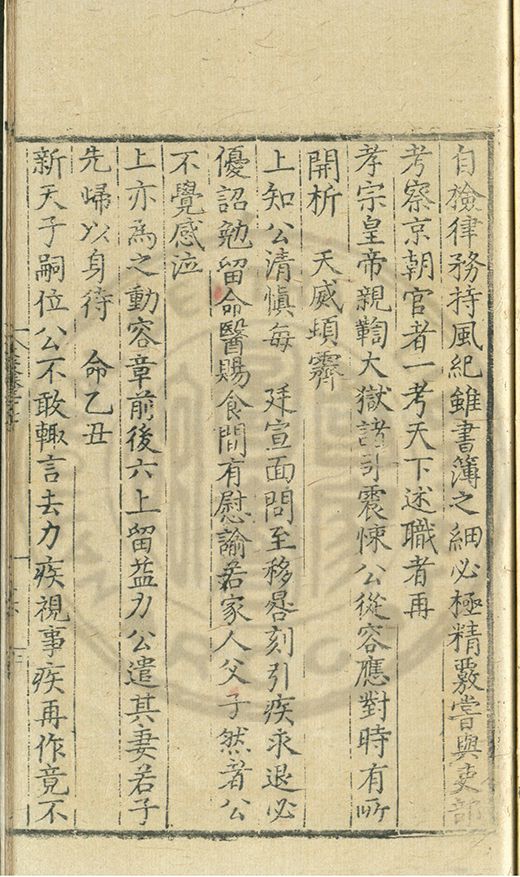 自檢律務持風紀雖書簿之細必極精覈嘗與吏部
考察京朝官者一考天下述職者再
孝宗皇帝親鞫大獄諸司震悚公從容應對時有所
開析　天威頓霽
上知公清慎每　廷宣面問至移晷刻引疾求退必
優詔勉留命醫賜食間有慰諭若家人父子然者公
不覺感泣
上亦為之動容章前後六上留益力公遣其妻若子
先歸以身待　命乙丑
新天子嗣位公不敢輒言去力疾視事疾再作竟不